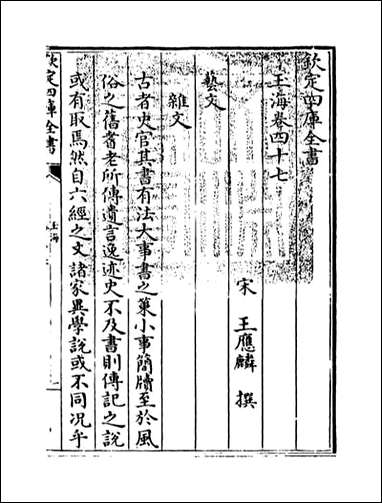 欽定四庫全書
玉海卷四十七
宋 王應麟 撰
藝文
雜文
古者史官其書有法大事書之策小事簡牘至於風
俗之舊耆老所傳遺言逸迹史不及書則傳記之說
或有取焉然自六經之文諸家異學說或不同況乎
欽定四庫全書
玉海